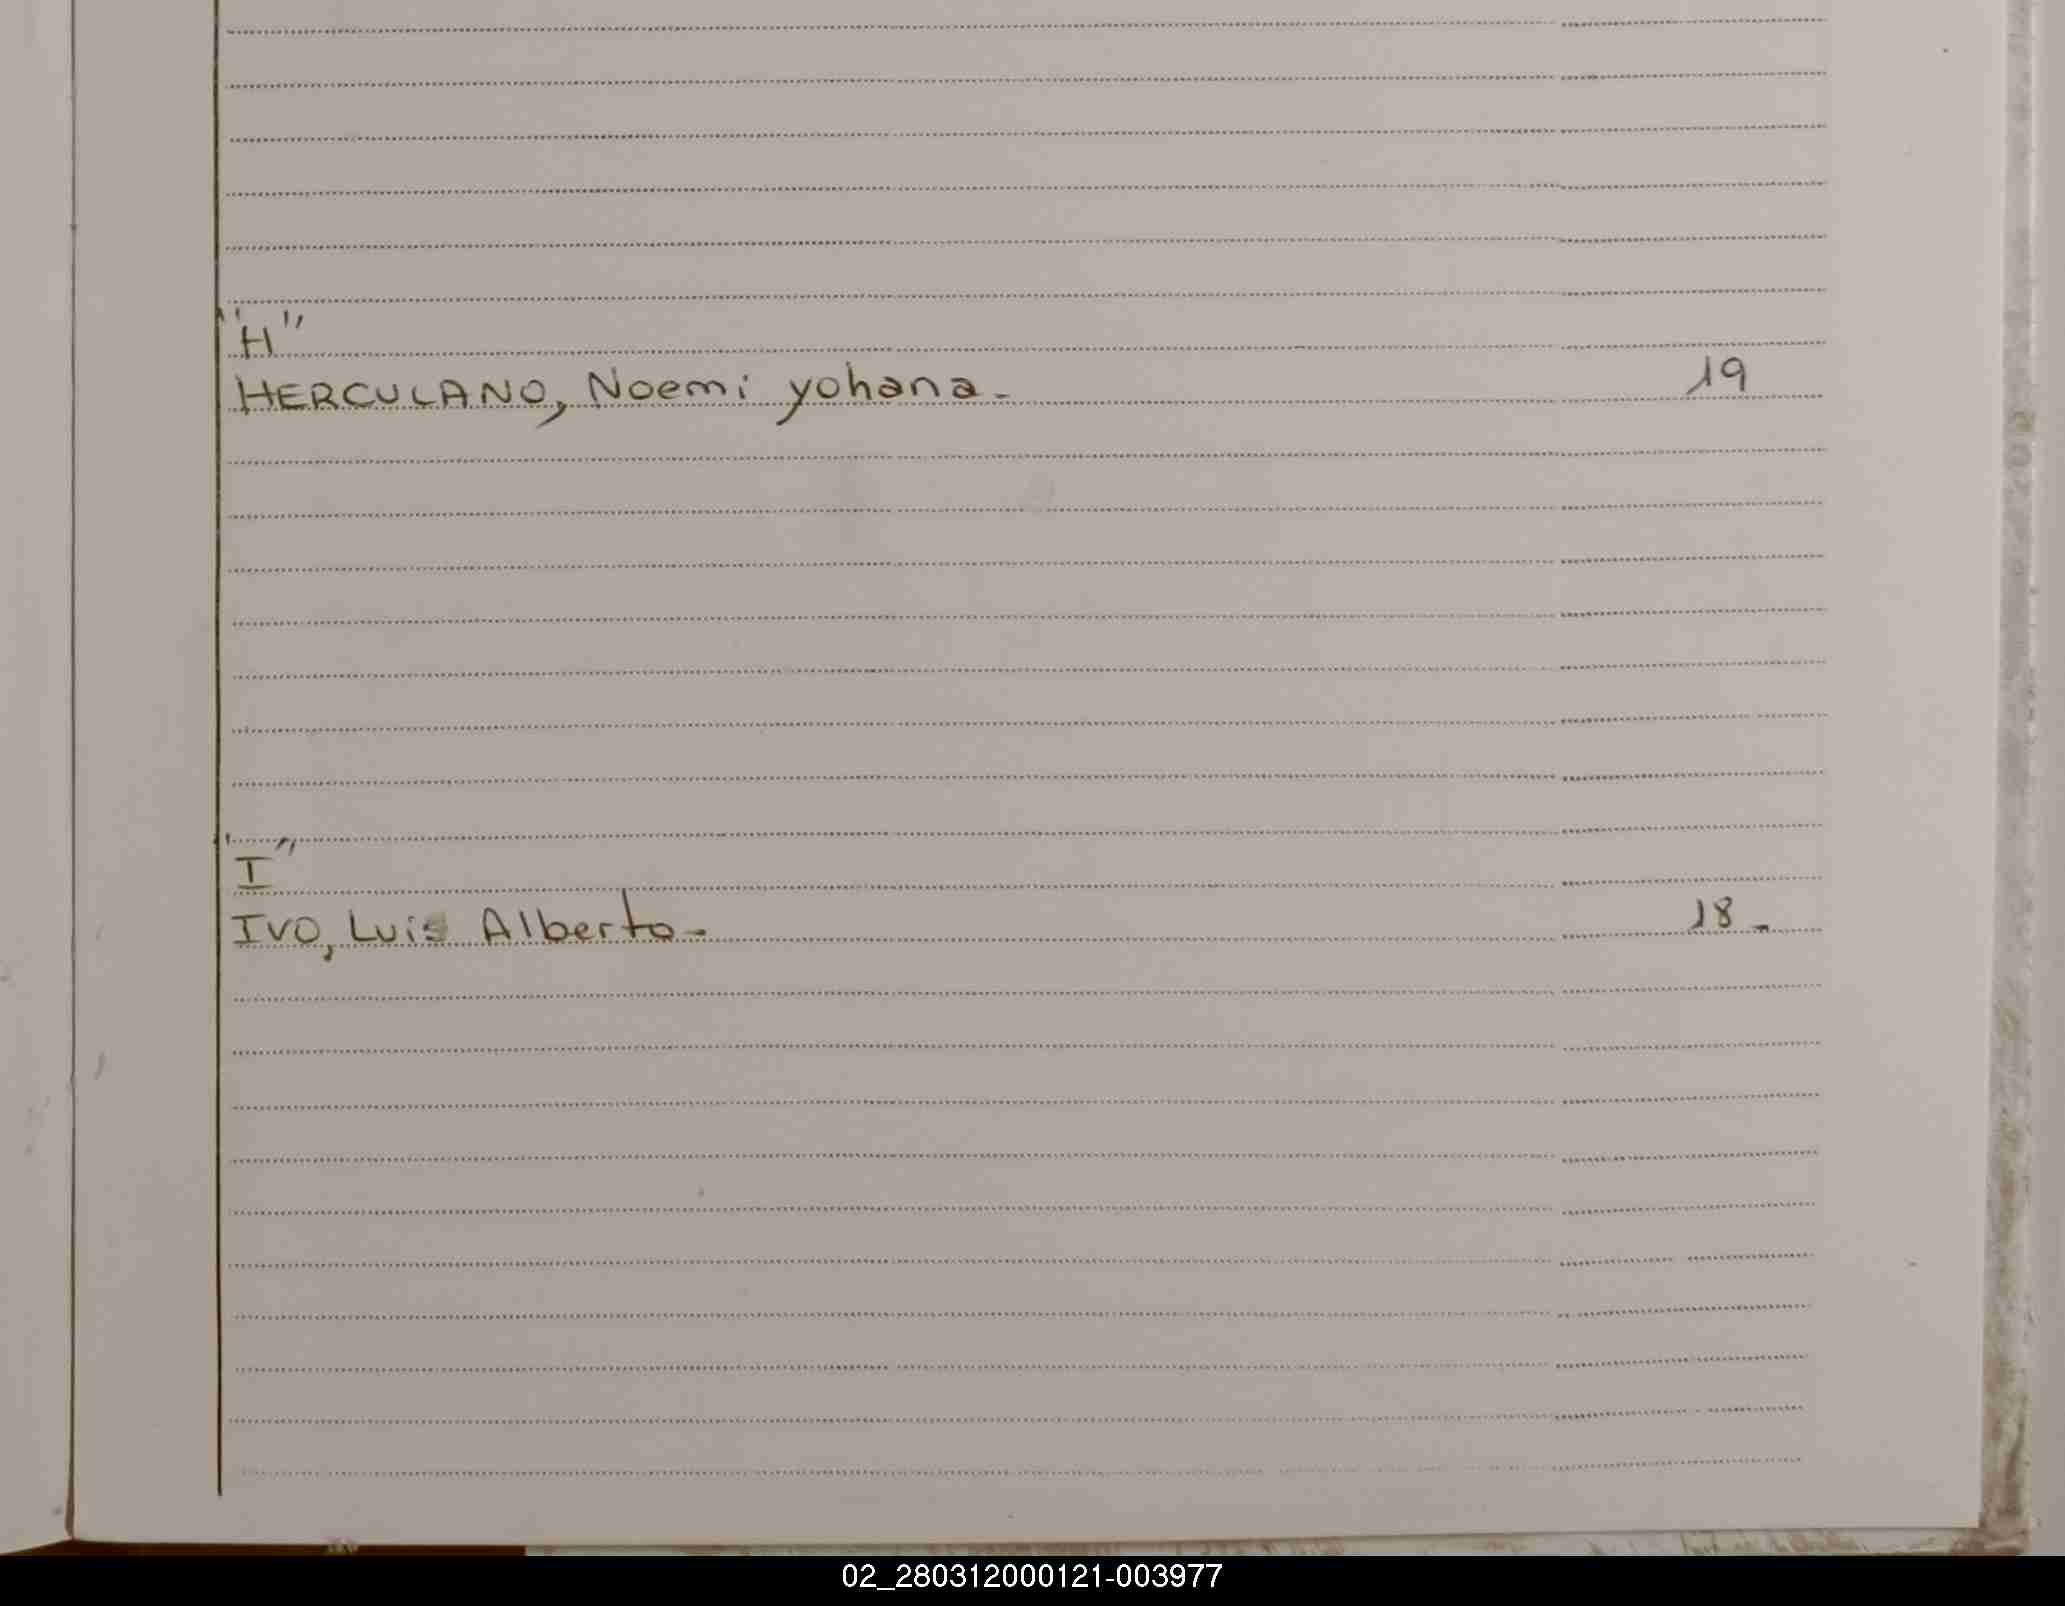 "H"
HERCULANO, Noemi yohana- 19
"I"
IVO, Luis Alberto- 18-
02_280312000121-003977